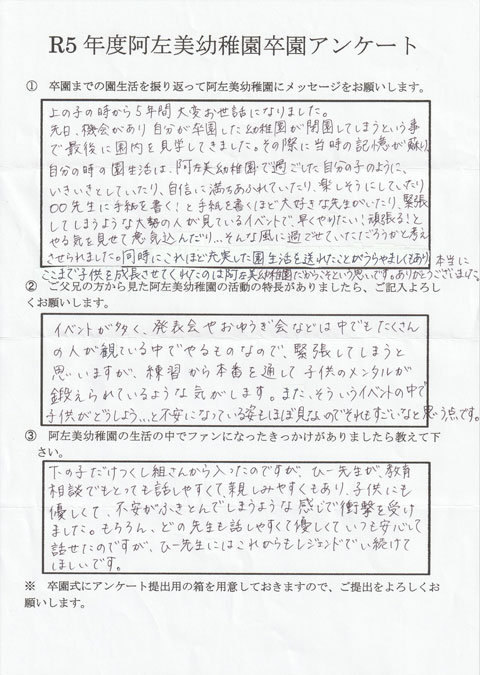 R5 年度阿左美幼稚園卒園アンケート
① 卒園までの園生活を振り返って阿左美幼稚園にメッセージをお願いします。
上の子の時から5年間大変お世話になりました。
先日、機会があり自分が卒園した幼稚園が閉園してしまうという事
で最後に園内を見学してきました。その際に当時の記憶が蘇り、
自分の時の園生活は、阿左美幼稚園で過ごした自分の子のように、
いきいきとしていたり、自信に満ちあふれていたり、楽しそうにしていたり
〇〇先生に手紙を書く!と手紙を書くほど大好きな先生がいたり、緊張
してしまうような大勢の人が見ているイベントで、早くやりたい!頑張る!と
やる気を見せて意気込んだり...そんな風に過ごせていただろうかと考え
させられました。同時にこれほど充実した園生活を送れたことがうらやましくあり、本当に
ここまで子供を成長させてくれたのは阿左美幼稚園だからこそという思いです。ありがとうございました。
② ご父兄の方から見た阿左美幼稚園の活動の特長がありましたら、ご記入よろし
くお願いします。
イベントが多く、発表会やおゆうぎ会などは中でもたくさん
の人が観ている中でやるものなので、緊張してしまうと
思いますが、練習から本番を通して子供のメンタルが
鍛えられているような気がします。また、そういうイベントの中で
子供がどうしよう...と不安になっている姿もほぼ見ないのでそれもすごいなと思う点です。
③ 阿左美幼稚園の生活の中でファンになったきっかけがありましたら教えて下
さい。
下の子だけつくし組さんから入ったのですが、ひー先生が、教育
相談でもとっても話しやすくて、親しみやすくもあり、子供にも
優しくて、不安がふきとんでしまうような感じで衝撃を受け
ました。もちろん、どの先生も話しやすくて優しくていつも安心して
話せたのですが、ひー先生にはこれからもレジェンドでい続けて
ほしいです。
※ 卒園式にアンケート提出用の箱を用意しておきますので、ご提出をよろしくお
願いします。